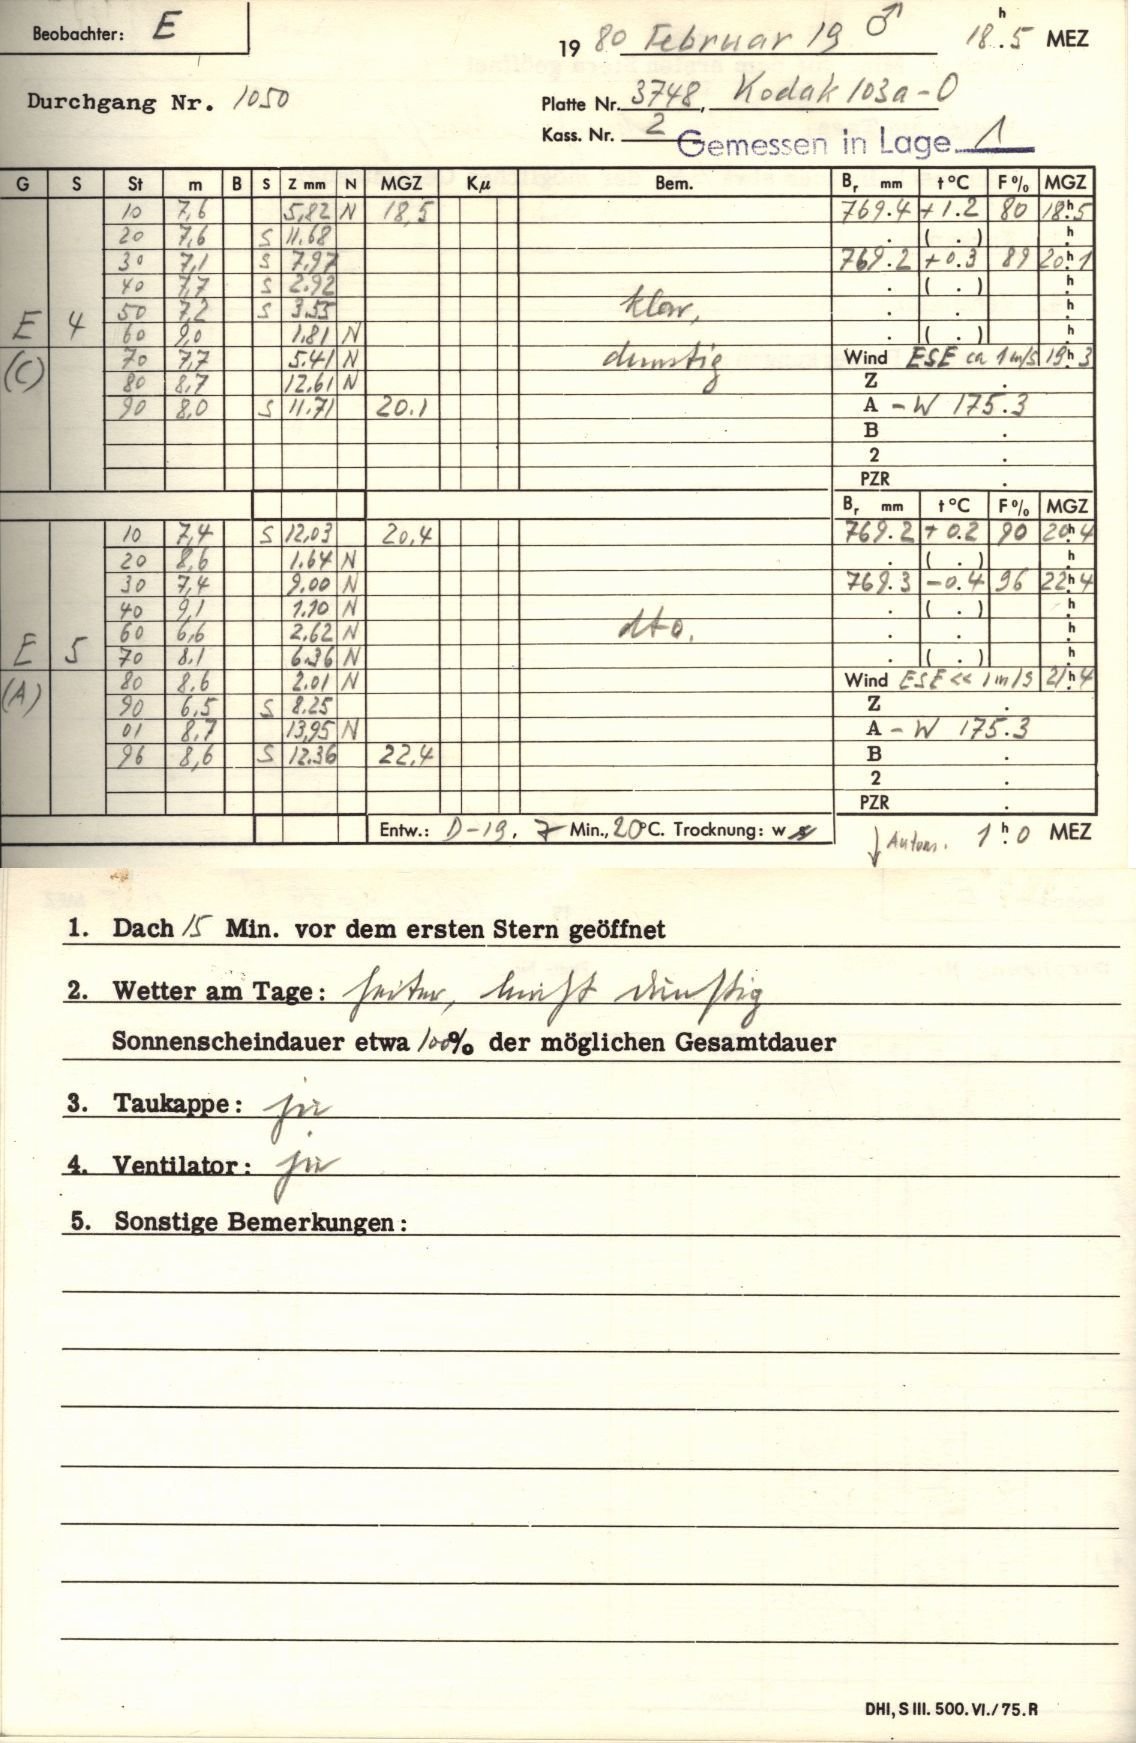 Beobachter: E
1980 Februar 19 ♂ 18.5ʰ MEZ
Durchgang Nr. 1050
Platte Nr. 3748, Kodak 103a-O
Kass. Nr. 2 Gemessen in Lage 1
G S St m B S Z mm N MGZ Kμ Bem. Bᵣ mm t°C F% MGZ
10 7,6 5,82 N 18,5 769.4 +1.2 80 18ʰ.5
20 7,6 S 11.68 . ( . ) ʰ.
30 7,1 S 7.97 769.2 +0.3 89 20ʰ.1
40 7,7 S 2.92 . ( . ) ʰ.
E 4 50 7,2 S 3.55 klar, . . ʰ.
60 9,0 1.81 N . ( . ) ʰ.
(C) 70 7,7 5.41 N dunstig Wind ESE ca 1 m/s 19ʰ.3
80 8,7 12.61 N Z .
90 8,0 S 11.71 20.1 A - W 175.3
B .
2 .
PZR .
Bᵣ mm t°C F% MGZ
10 7,4 S 12,03 20,4 769.2 +0.2 90 20ʰ.4
20 8,6 1.64 N . ( . ) ʰ.
30 7,4 9.00 N 769.3 -0.4 96 22ʰ.4
40 9,1 1.10 N . ( . ) ʰ.
60 6,6 2,62 N dto. . . ʰ.
E 5 70 8,1 6.36 N . ( . ) ʰ.
(A) 80 8,6 2.01 N Wind ESE << 1 m/s 21ʰ.4
90 6,5 S 8.25 Z .
01 8,7 13,95 N A - W 175.3
96 8,6 S 12.36 22,4 B .
2 .
PZR .
Entw.: D-19, 7 Min., 20°C. Trocknung: w ↓ Autom. 1ʰ.0 MEZ
1. Dach 15 Min. vor dem ersten Stern geöffnet
2. Wetter am Tage: heiter, leicht dunstig
Sonnenscheindauer etwa 100% der möglichen Gesamtdauer
3. Taukappe: ja
4. Ventilator: ja
5. Sonstige Bemerkungen:
DHI, S III. 500. VI./75. R